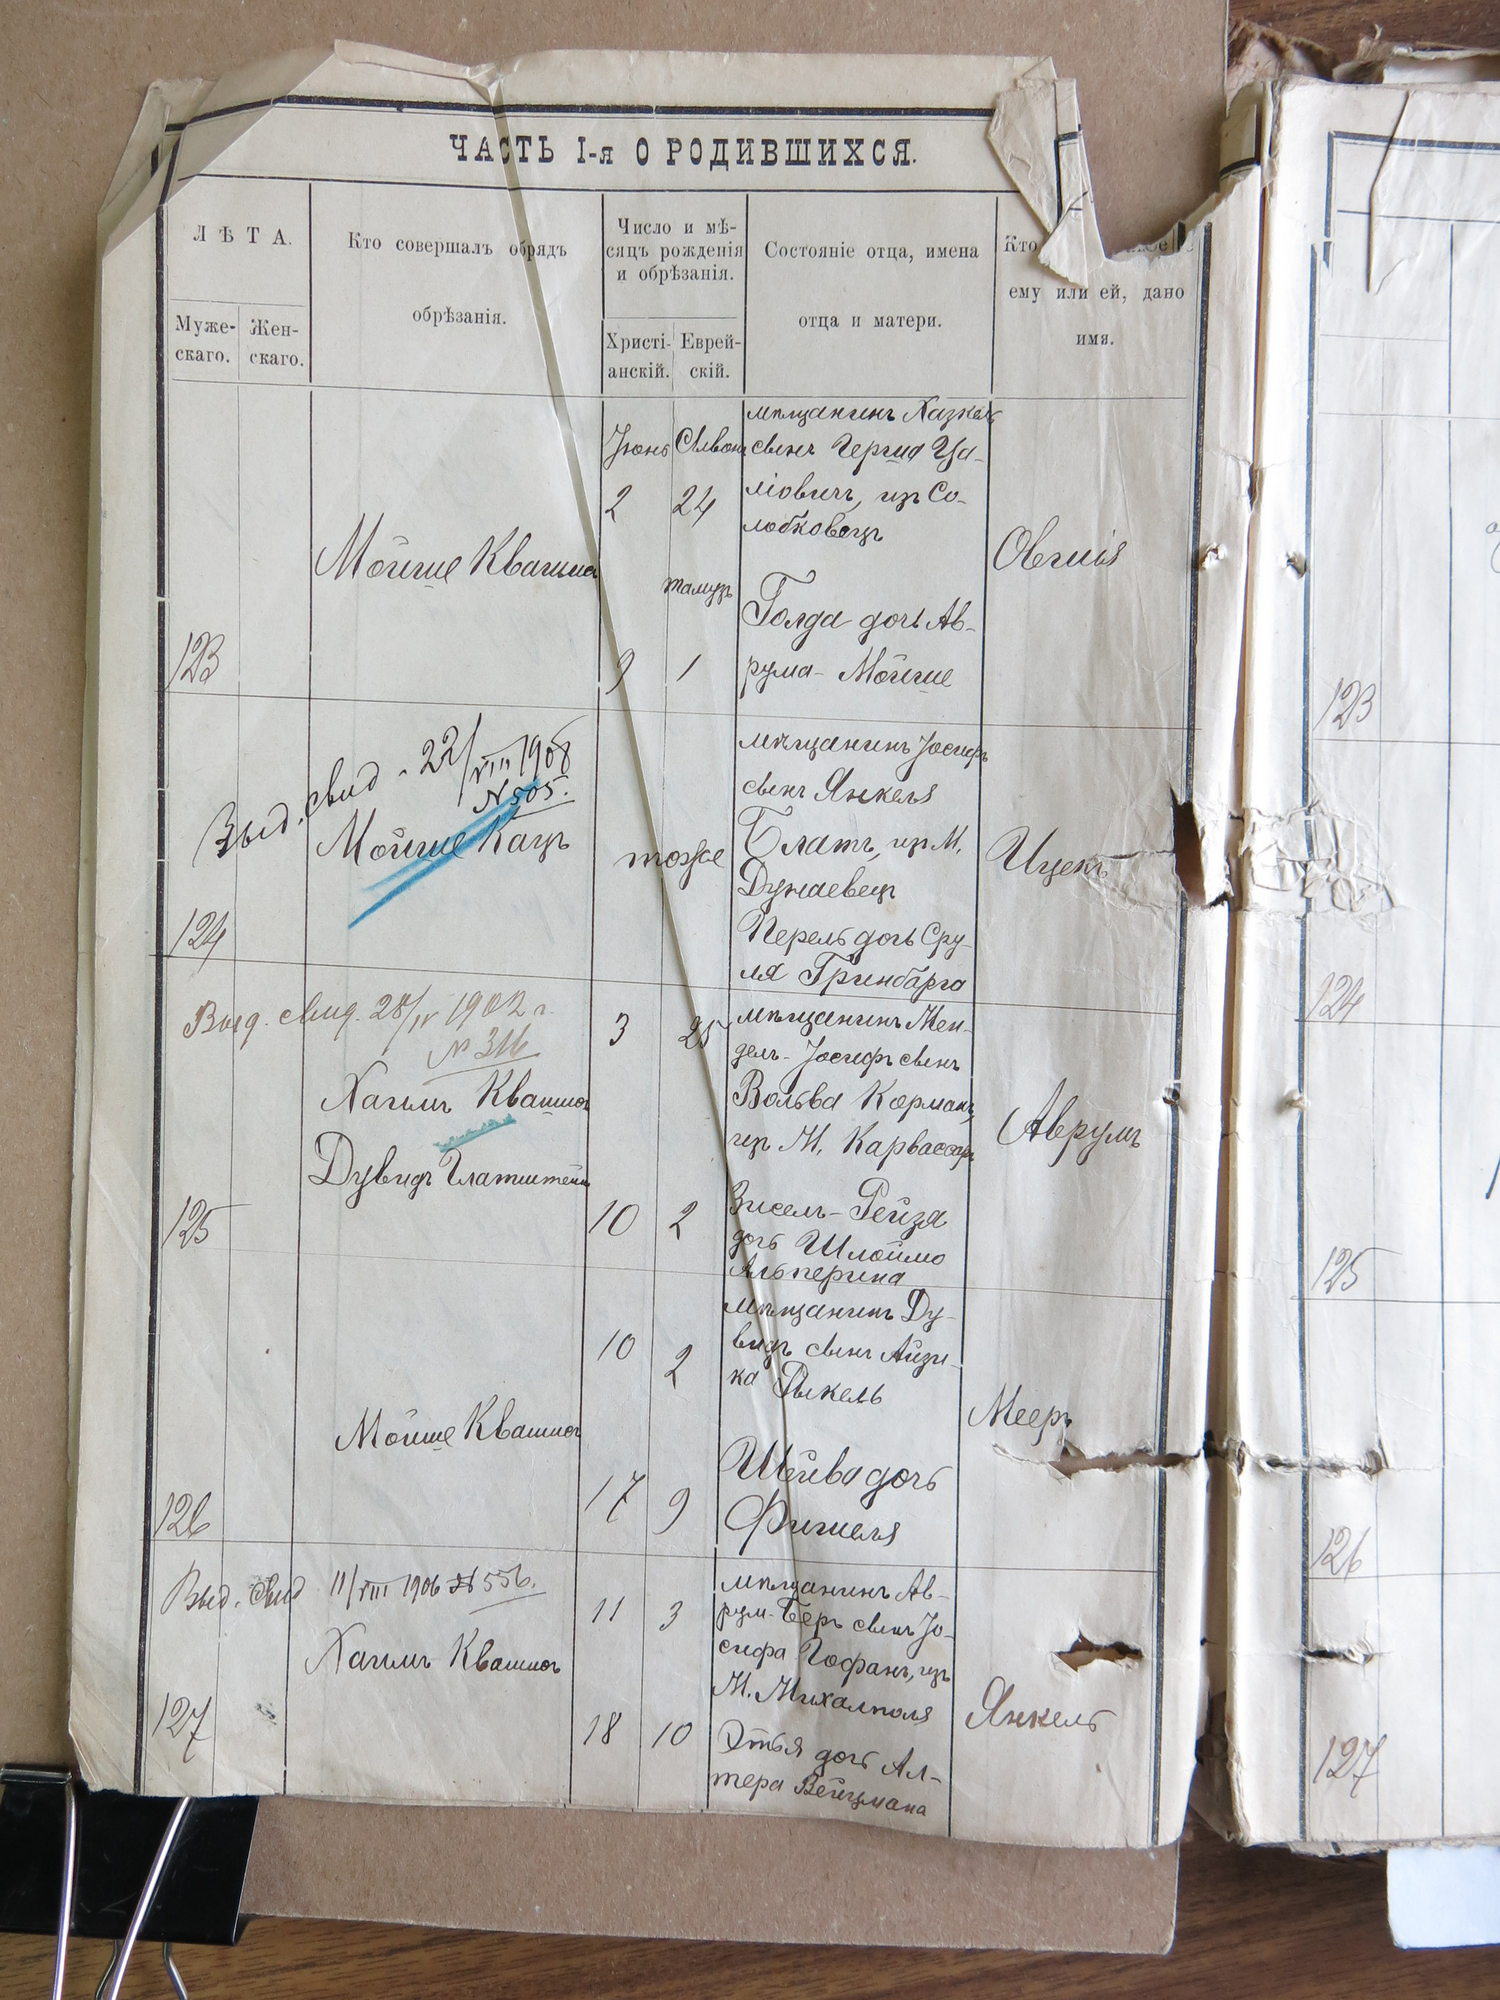 ЧАСТЬ I-я О РОДИВШИХСЯ.
ЛѢТА.
Муже-
скаго.
Жен-
скаго.
Кто совершалъ обрядъ
обрѣзанія.
Число и мѣ-
сяцъ рожденія
и обрѣзанія.
Христі-
анскій.
Еврей-
скій.
Состояніе отца, имена
отца и матери.
Кто
ему или ей, дано
имя.
123
Мойше Квашна
Іюнь
2
9
Сивонъ
24
тамузъ
1
мѣщанинъ Хазкель
сынъ Гершка Ца-
ліовичъ, изъ Со-
лобковецъ
Голда дочь Ав-
рума-Мойше
Овшія
124
Выд. свид. 22/VIII 1908
N 505.
Мойше Кацъ
тоже
мѣщанинъ Іосифъ
сынъ Янкеля
Блатъ, изъ М.
Дунаевецъ
Перель дочь Сру-
ля Гринбарга
Ицекъ
125
Выд. свид. 28/IV 1902 г.
№ 316
Хаимъ Квашна
Дувидъ Глатштейн
3
10
25
2
мѣщанинъ Мен-
дель-Іосифъ сынъ
Вольва Корманъ,
изъ М. Карвассаръ
Зисель-Рейзя
дочь Шлоймо
Альперина
Аврумъ
126
Мойше Квашна
10
17
2
9
мѣщанинъ Ду-
видъ сынъ Айзи-
ка Рикель
Шейва дочь
Фишеля
Мееръ
127
Выд. свид 11/VIII 1906 № 556.
Хаимъ Квашна
11
18
3
10
мѣщанинъ Ав-
рум-Беръ сынъ Іо-
сифа Гофанъ, изъ
М. Михалполя
Этья дочь Ал-
тера Вейцмана
Янкель
123
124
125
126
127